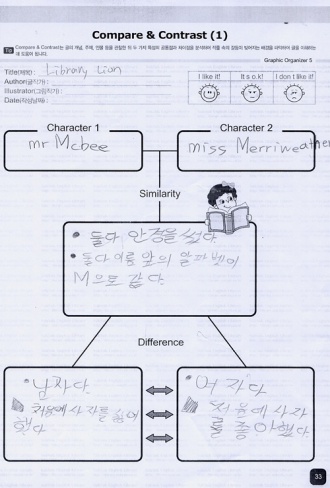 Compare & Contrast (1)
Tip Compare & Contrast는 글의 개념, 주제, 인물 등을 관찰한 뒤 두 가지 특징의 공통점과 차이점을 분석하여
Graphic Organizer 5
Title(제목) : Library Lion
Author(글작가) :
Illustrator(그림작가) :
Date(작성날짜) :
I like it! It s o.k! I don t like it!
Character 1
mr Mcbee
Character 2
miss Merriweather
Similarity
• 둘다 안경을 썼다.
• 둘다 이름 앞의 알파벳이
M으로 같다.
Difference
• 남자다.
처음에 사자를 싫어
했다
• 여자다
처음에 사자
를 좋아했다.
33